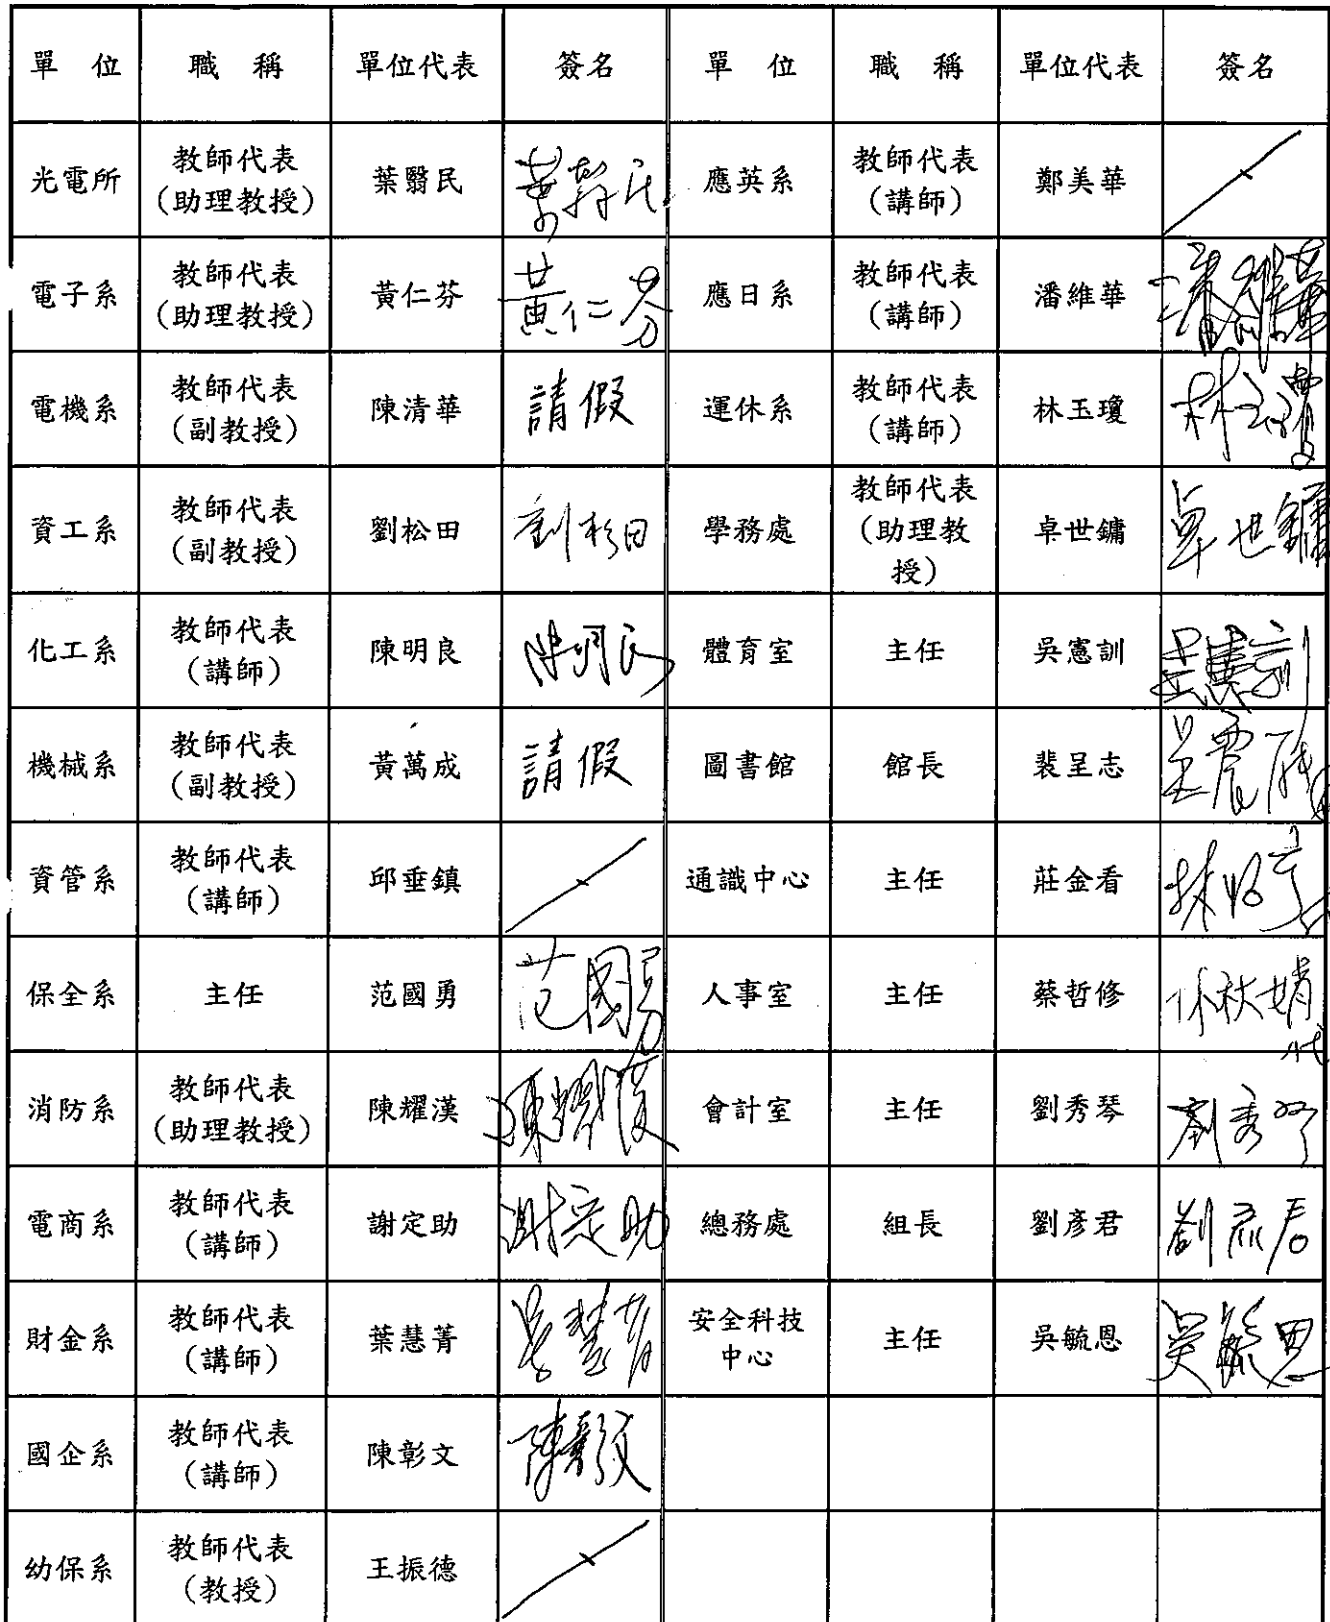 單 位 職 稱 單位代表 簽名 單 位 職 稱 單位代表 簽名
光電所 教師代表 (助理教授) 葉翳民 葉翳民 應英系 教師代表 (講師) 鄭美華
電子系 教師代表 (助理教授) 黃仁芬 黃仁芬 應日系 教師代表 (講師) 潘維華 潘維華
電機系 教師代表 (副教授) 陳清華 請假 運休系 教師代表 (講師) 林玉瓊 林玉瓊
資工系 教師代表 (副教授) 劉松田 劉松田 學務處 教師代表 (助理教授) 卓世鏞 卓世鏞
化工系 教師代表 (講師) 陳明良 陳明良 體育室 主任 吳憲訓 吳憲訓
機械系 教師代表 (副教授) 黃萬成 請假 圖書館 館長 裴呈志
資管系 教師代表 (講師) 邱垂鎮 通識中心 主任 莊金看
保全系 主任 范國勇 范國勇 人事室 主任 蔡哲修 林秋娟代
消防系 教師代表 (助理教授) 陳耀漢 陳耀漢 會計室 主任 劉秀琴 劉秀琴
電商系 教師代表 (講師) 謝定助 謝定助 總務處 組長 劉彥君 劉彥君
財金系 教師代表 (講師) 葉慧菁 葉慧菁 安全科技中心 主任 吳毓恩 吳毓恩
國企系 教師代表 (講師) 陳彰文 陳彰文
幼保系 教師代表 (教授) 王振德